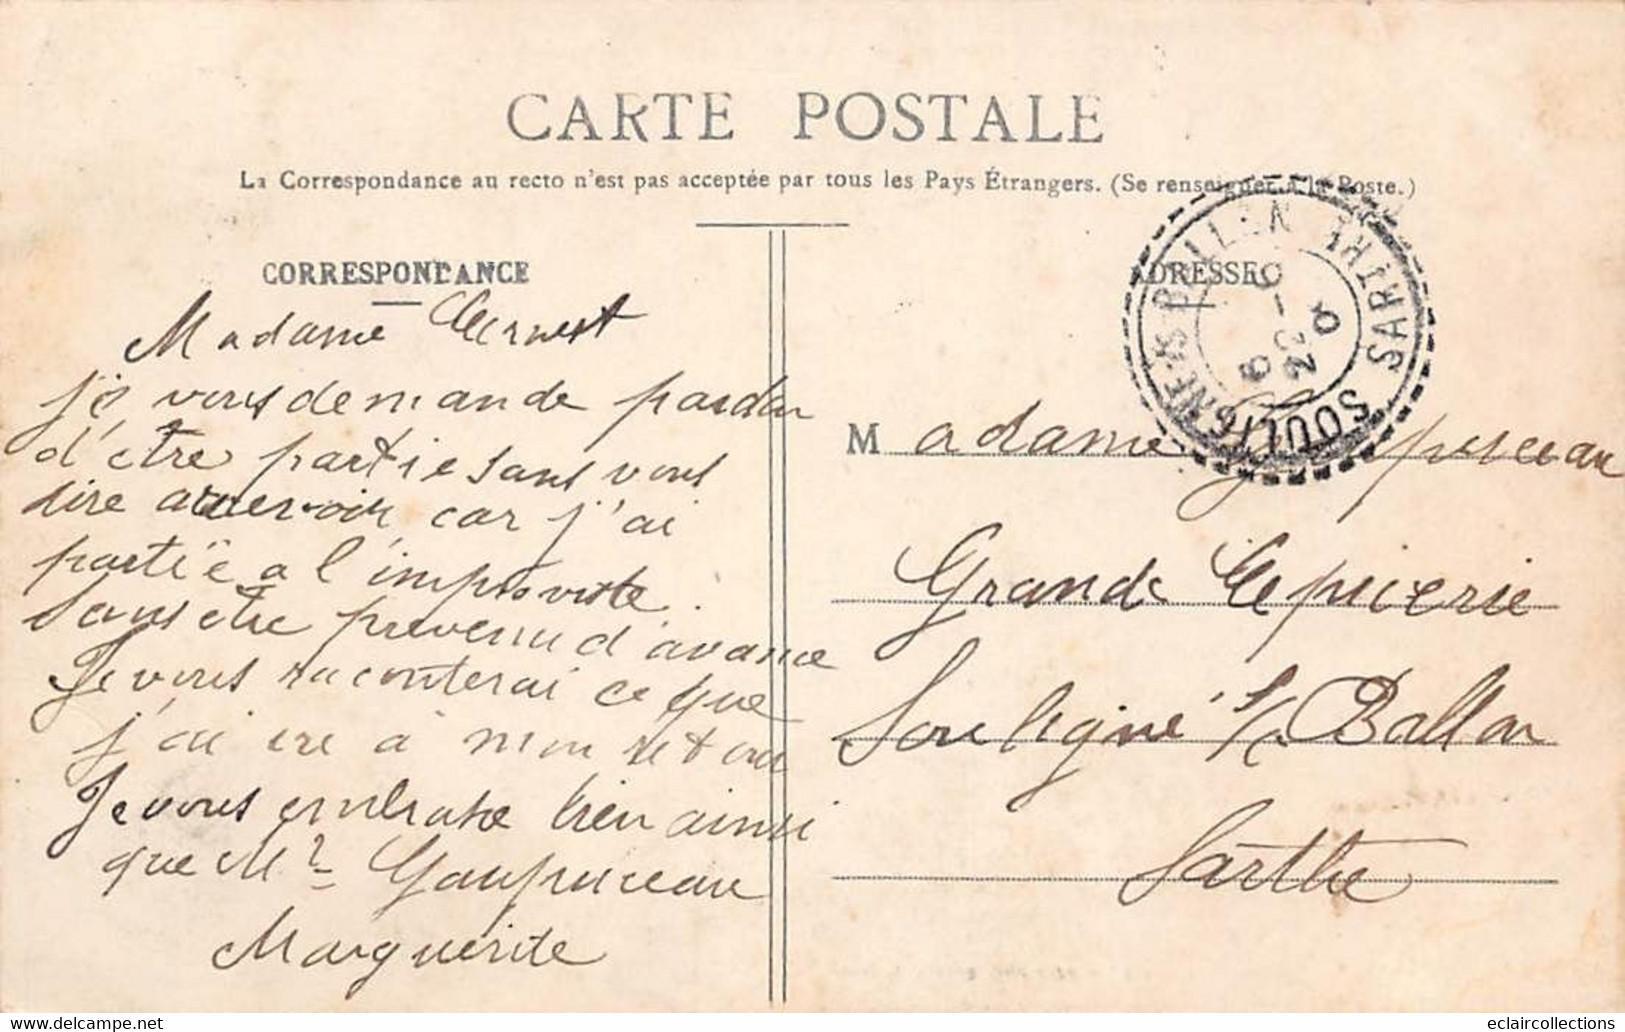 CARTE POSTALE
La Correspondance au recto n'est pas acceptée par tous les Pays Étrangers. (Se renseigner à la Poste.)
CORRESPONDANCE
Madame Ernest
je vous demande pardon
d'être partie sans vous
dire aurevoir car j'ai
partië a l'improviste.
Sans être prevenu d'avance
Je vous raconterai ce que
j'ai ere à mon retour
Je vous embrasse bien ainsi
que Mr Gaupuceau
Marguerite
ADRESSE
SOULIGNE-S-BALLON SARTHE
Madame Gaupuceau
Grande Epicerie
Souligné s/s Ballon
Sarthe
eclaircollections